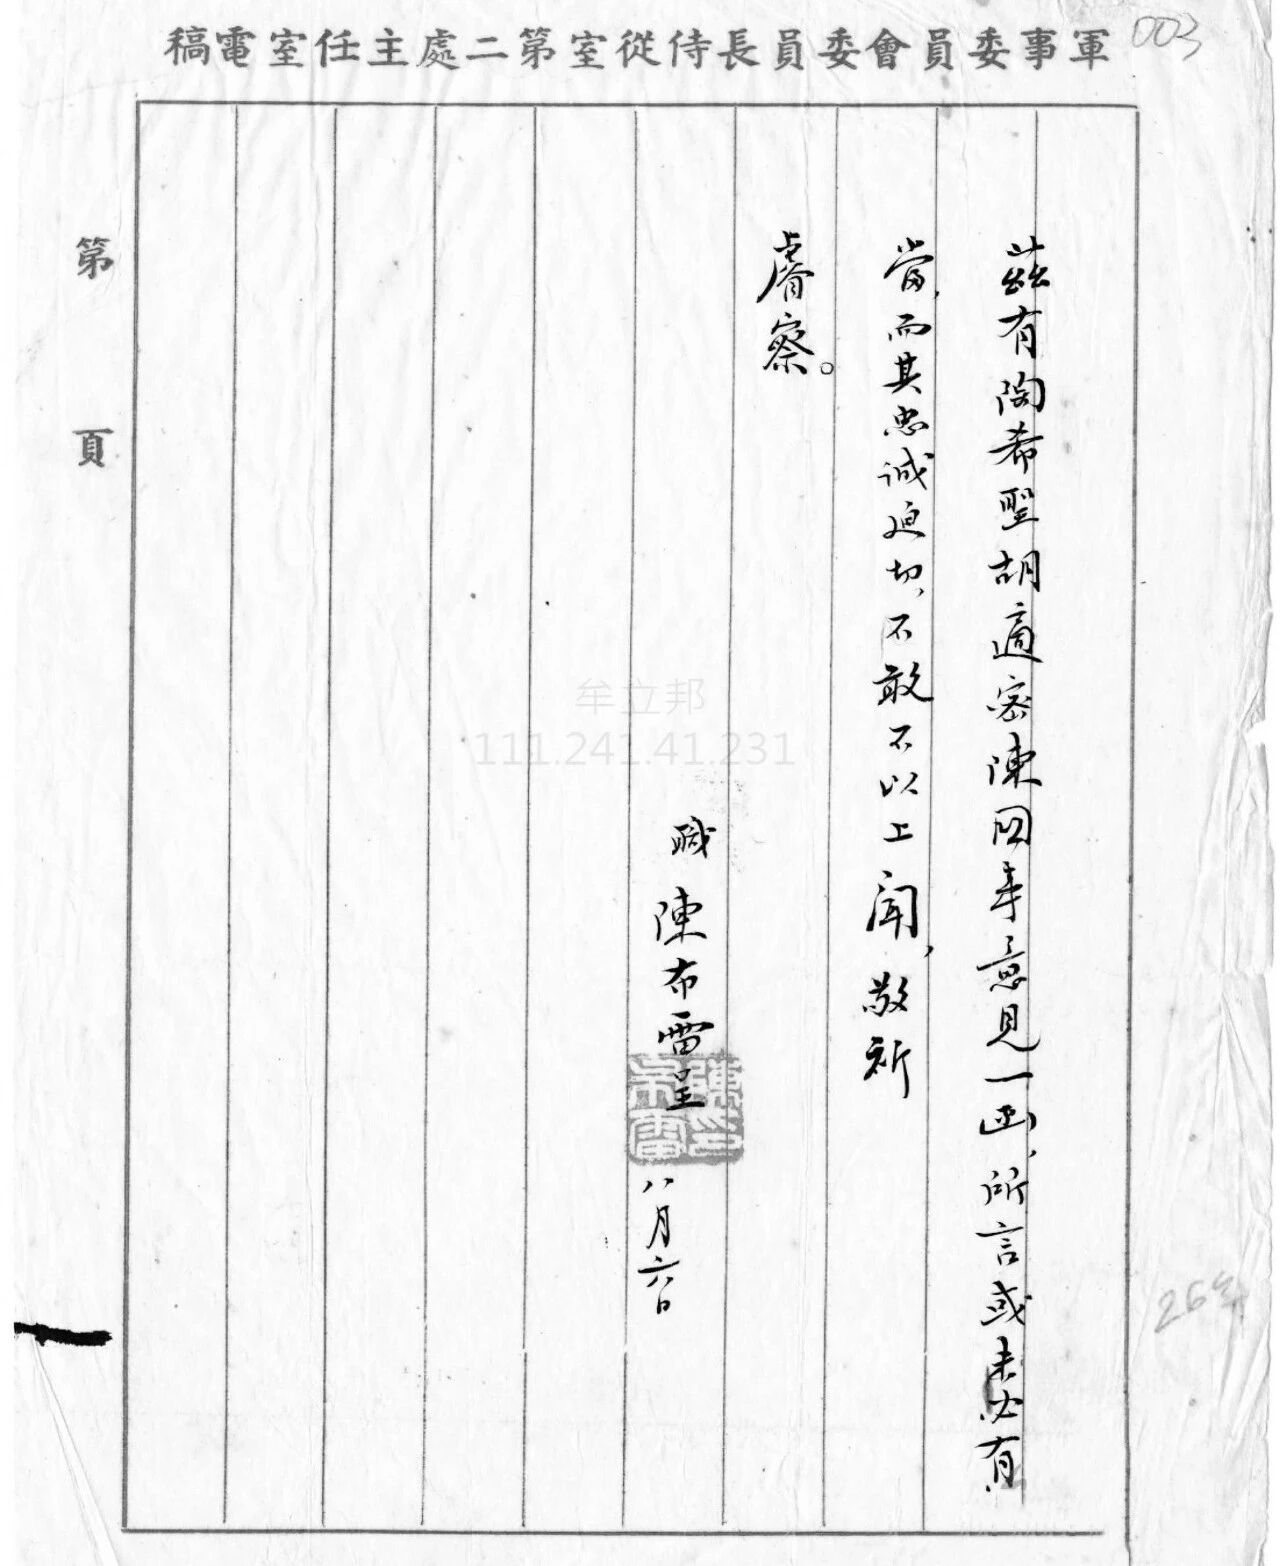 軍事委員會委員長侍從室第二處主任室電稿
003
茲有陶希聖胡適密陳國事意見一函，所言或未必有
當，而其忠誠迫切，不敢不以上聞，敬祈
睿察。
職 陳布雷呈
陳布雷印
八月六日
第 頁
26年
牟立邦
111.241.41.231